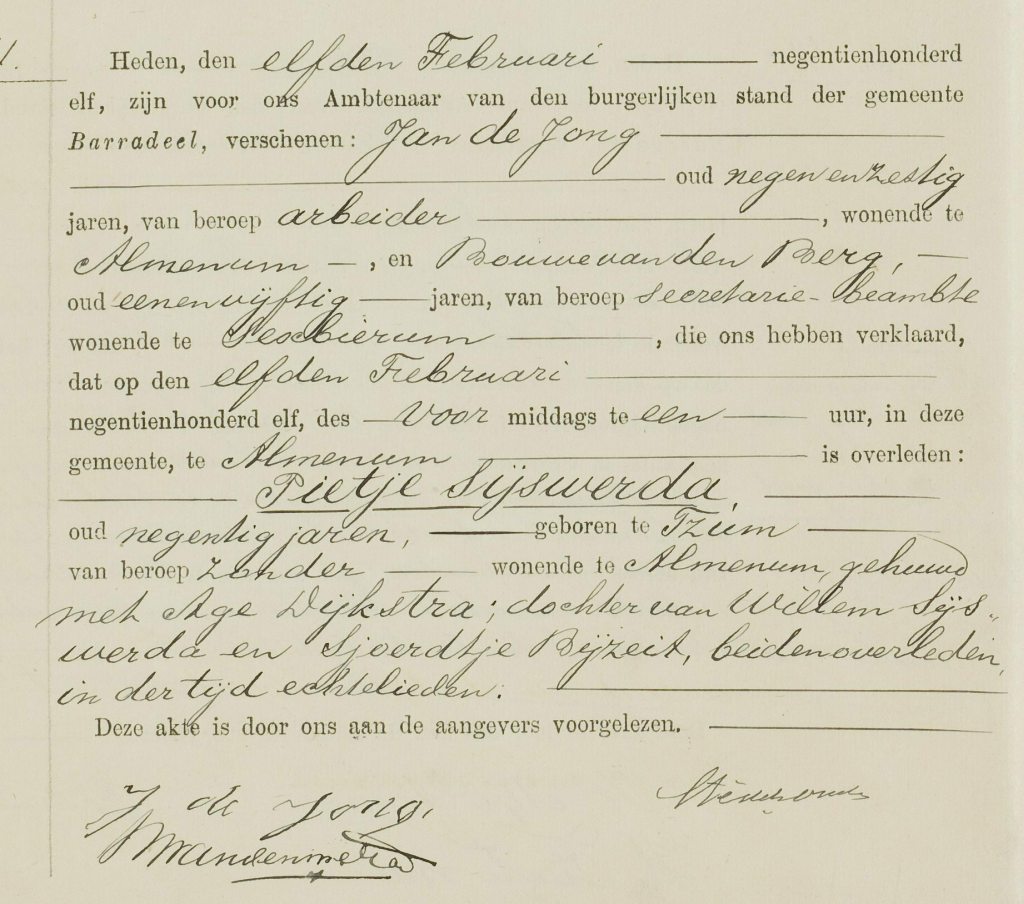 Heden, den elfden Februari negentienhonderd
elf, zijn voor ons Ambtenaar van den burgerlijken stand der gemeente
Barradeel, verschenen: Jan de Jong
oud negen en zestig
jaren, van beroep arbeider, wonende te
Almenum —, en Bouwe van den Berg, —
oud eenenvijftig jaren, van beroep secretarie-beambte
wonende te Sexbierum, die ons hebben verklaard,
dat op den elfden Februari
negentienhonderd elf, des voor middags te een uur, in deze
gemeente, te Almenum is overleden:
Pietje Sijswerda,
oud negentig jaren, geboren te Tzum
van beroep zonder wonende te Almenum, gehuwd
met Age Dijkstra; dochter van Willem Sijs„
werda en Sjoerdtje Bijzeit, beiden overleden,
in der tijd echtelieden.
Deze akte is door ons aan de aangevers voorgelezen.
J de Jong.